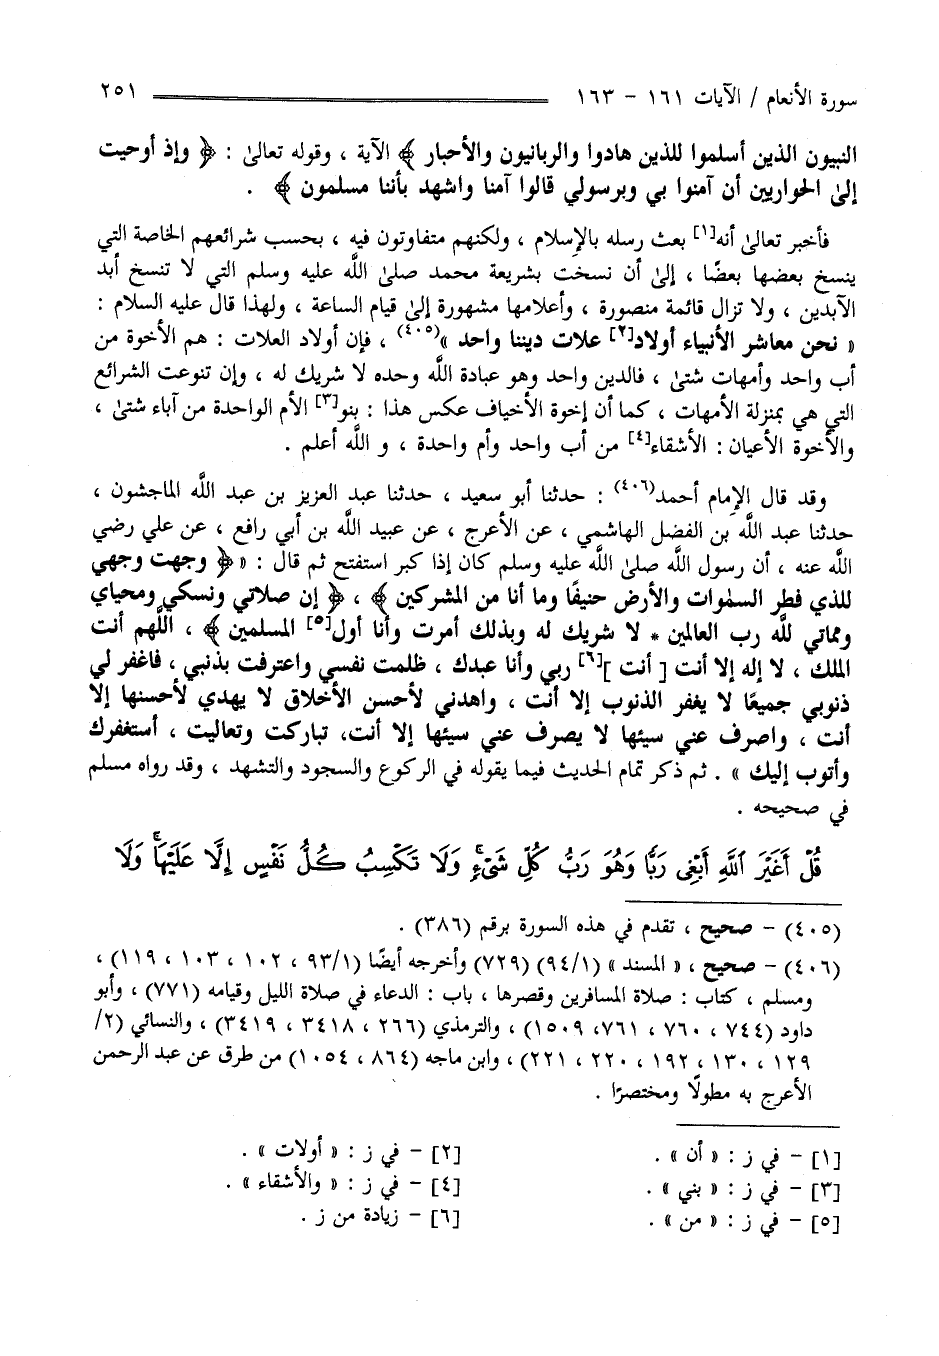 سورة الأنعام / الآيات ١٦١ - ١٦٣ ٢٥١
النبيون الذين أسلموا للذين هادوا والربانيون والأحبار ﴾ الآية ، وقوله تعالىٰ : ﴿ وإذ أوحيت
إلىٰ الحواريين أن آمنوا بي وبرسولي قالوا آمنا واشهد بأننا مسلمون ﴾ .
فأخبر تعالىٰ أنه[١] بعث رسله بالإسلام ، ولكنهم متفاوتون فيه ، بحسب شرائعهم الخاصة التي
ينسخ بعضها بعضًا ، إلىٰ أن نسخت بشريعة محمد صلىٰ اللَّه عليه وسلم التي لا تنسخ أبد
الآبدين ، ولا تزال قائمة منصورة ، وأعلامها مشهورة إلىٰ قيام الساعة ، ولهذا قال عليه السلام :
« نحن معاشر الأنبياء أولاد[٢] علات ديننا واحد »(٤٠٥) ، فإن أولاد العلات : هم الأخوة من
أب واحد وأمهات شتىٰ ، فالدين واحد وهو عبادة اللَّه وحده لا شريك له ، وإن تنوعت الشرائع
التي هي بمنزلة الأمهات ، كما أن إخوة الأخياف عكس هذا : بنو[٣] الأم الواحدة من آباء شتىٰ ،
والأخوة الأعيان : الأشقاء[٤] من أب واحد وأم واحدة ، و اللَّه أعلم .
وقد قال الإمام أحمد(٤٠٦) : حدثنا أبو سعيد ، حدثنا عبد العزيز بن عبد اللَّه الماجشون ،
حدثنا عبد اللَّه بن الفضل الهاشمي ، عن الأعرج ، عن عبيد اللَّه بن أبي رافع ، عن علي رضي
اللَّه عنه ، أن رسول اللَّه صلىٰ اللَّه عليه وسلم كان إذا كبر استفتح ثم قال : « ﴿ وجهت وجهي
للذي فطر السمٰوات والأرض حنيفًا وما أنا من المشركين ﴾ ، ﴿ إن صلاتي ونسكي ومحياي
ومماتي للَّه رب العالمين * لا شريك له وبذلك أمرت وأنا أول[٥] المسلمين ﴾ ، اللَّهم أنت
الملك ، لا إله إلا أنت [ أنت ][٦] ربي وأنا عبدك ، ظلمت نفسي واعترفت بذنبي ، فاغفر لي
ذنوبي جميعًا لا يغفر الذنوب إلا أنت ، واهدني لأحسن الأخلاق لا يهدي لأحسنها إلا
أنت ، واصرف عني سيئها لا يصرف عني سيئها إلا أنت، تباركت وتعاليت ، أستغفرك
وأتوب إليك » . ثم ذكر تمام الحديث فيما يقوله في الركوع والسجود والتشهد ، وقد رواه مسلم
في صحيحه .
قُلْ أَغَيْرَ ٱللَّهِ أَبْغِى رَبًّا وَهُوَ رَبُّ كُلِّ شَىْءٍ وَلَا تَكْسِبُ كُلُّ نَفْسٍ إِلَّا عَلَيْهَا وَلَا
(٤٠٥) - صحيح ، تقدم في هذه السورة برقم (٣٨٦) .
(٤٠٦) - صحيح ، « المسند » (٩٤/١) (٧٢٩) وأخرجه أيضًا (٩٣/١ ، ١٠٢ ، ١٠٣ ، ١١٩) ،
ومسلم ، كتاب : صلاة المسافرين وقصرها ، باب : الدعاء في صلاة الليل وقيامه (٧٧١) ، وأبو
داود (٧٤٤ ، ٧٦٠ ، ٧٦١، ١٥٠٩) ، والترمذي (٢٦٦ ، ٣٤١٨ ، ٣٤١٩) ، والنسائي (٢/
١٢٩ ، ١٣٠ ، ١٩٢ ، ٢٢٠ ، ٢٢١) ، وابن ماجه (٨٦٤ ، ١٠٥٤) من طرق عن عبد الرحمن
الأعرج به مطولًا ومختصرًا .
[١] - في ز : « أن » . [٢] - في ز : « أولات » .
[٣] - في ز : « بني » . [٤] - في ز : « والأشقاء » .
[٥] - في ز : « من » . [٦] - زيادة من ز .